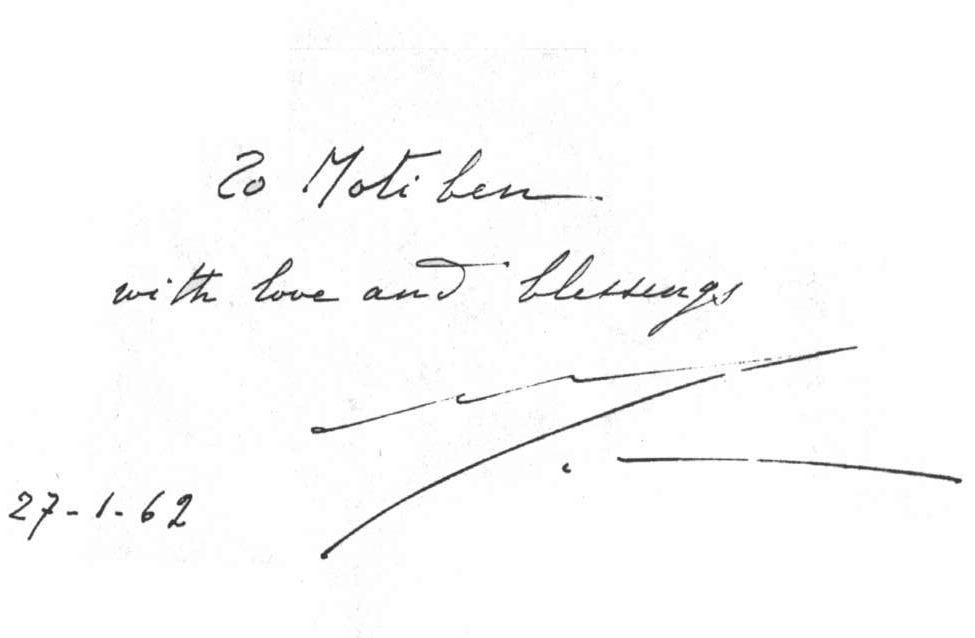 To Moti ben
with love and blessings
27-1-62